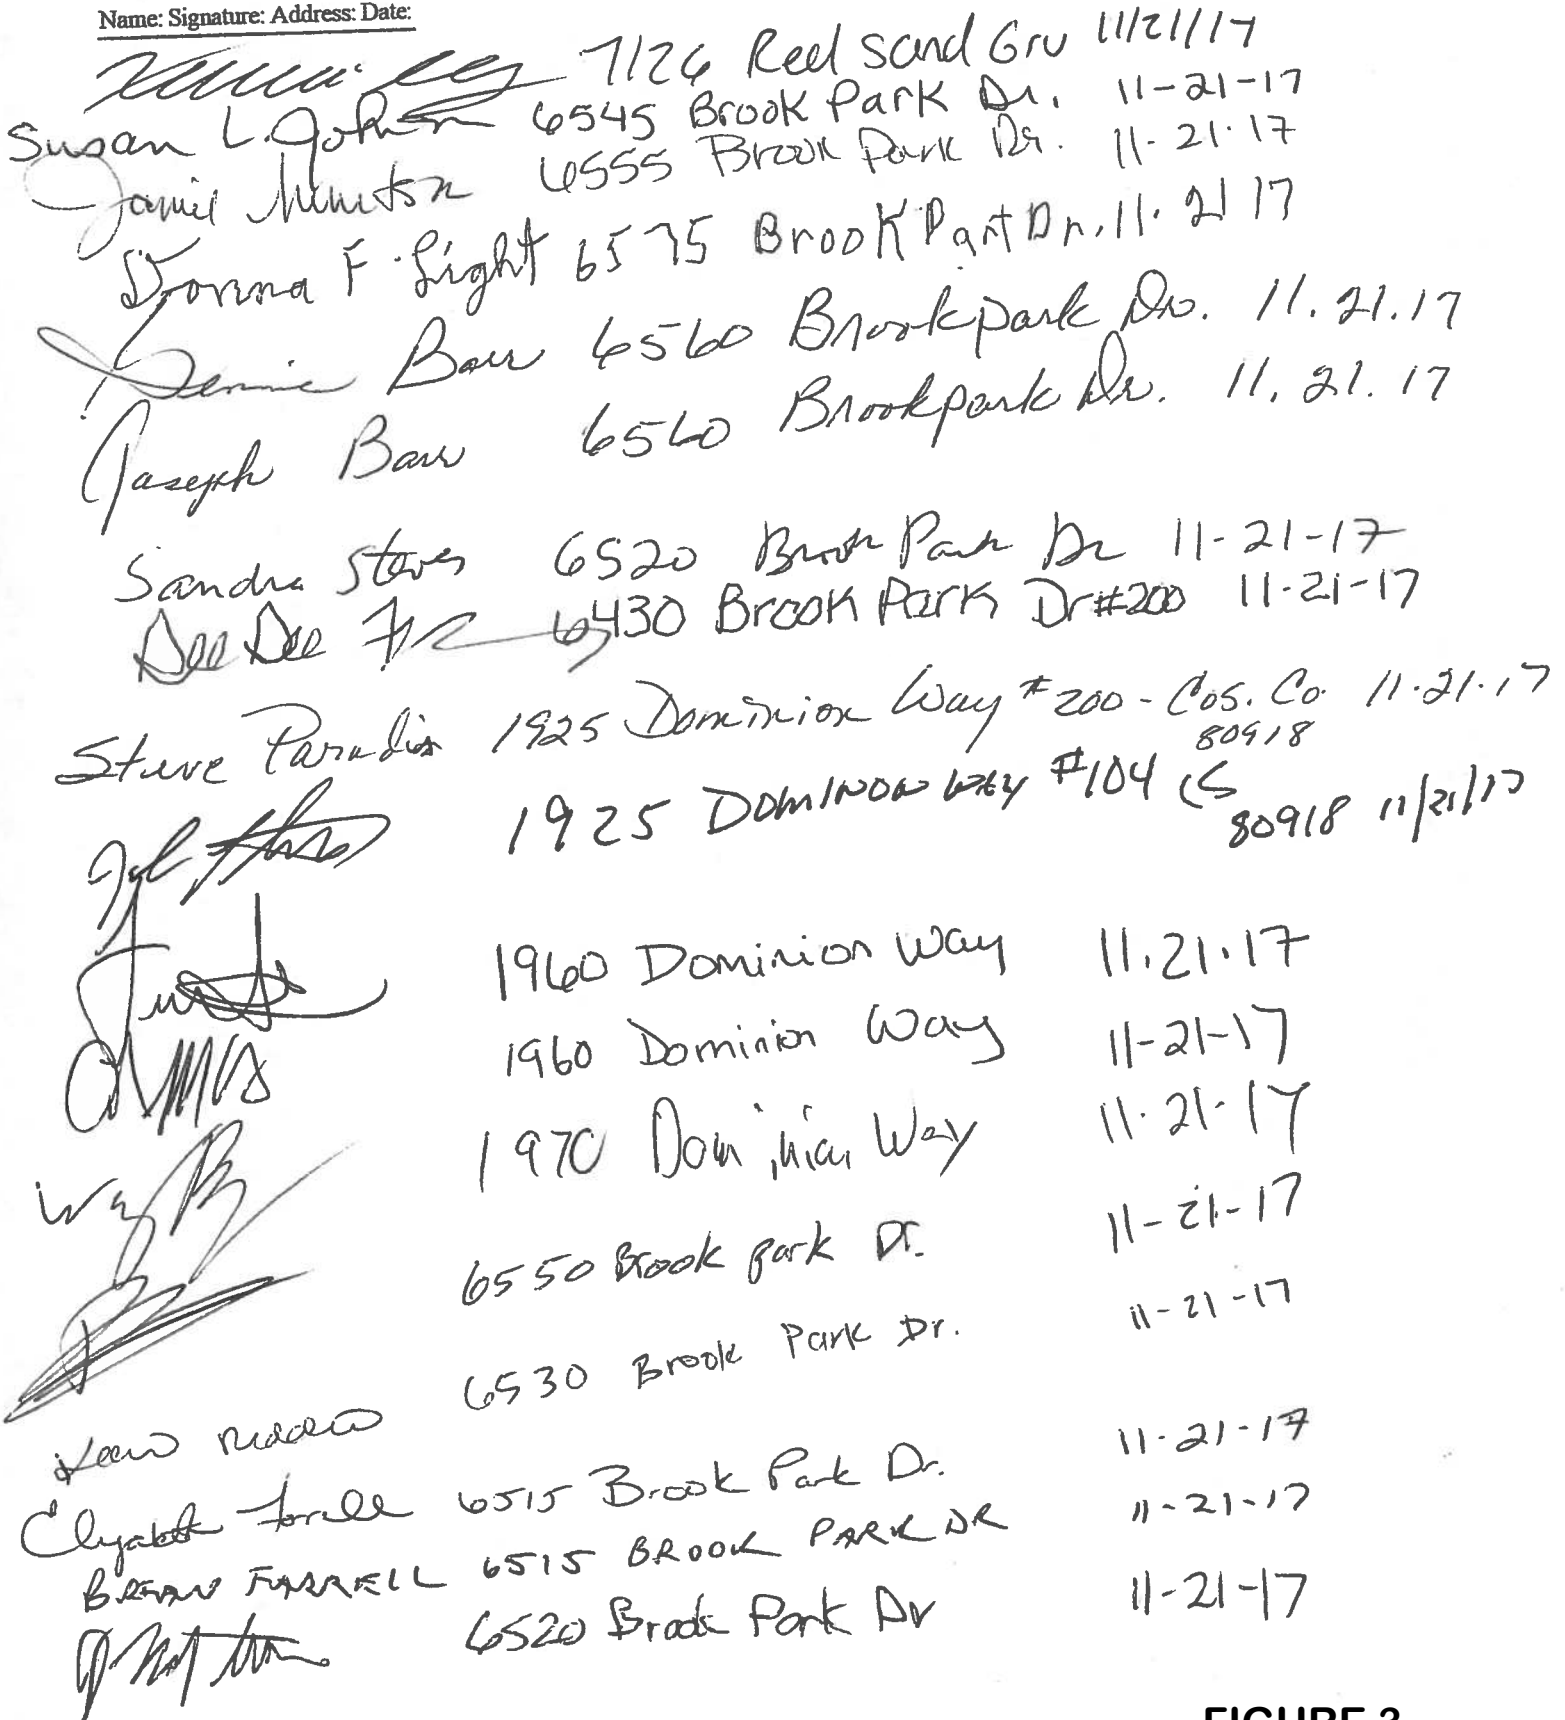 Name: Signature: Address: Date:
7126 Red Sand Grv 11/21/17
Susan L. Johnson 6545 Brook Park Dr. 11-21-17
6555 Brook Park Dr. 11-21-17
Donna F. Light 6575 Brook Park Dr. 11. 21 17
Jennie Barr 6560 Brookpark Dr. 11.21.17
Joseph Barr 6560 Brookpark Dr. 11.21.17
Sandra 6520 Brook Park Dr 11-21-17
Dee Dee 6430 Brook Park Dr #200 11-21-17
Steve Paradis 1925 Dominion Way #200 - Cos. Co. 11.21.17
80918
1925 DOMINON WAY #104 CS
80918 11/21/17
1960 Dominion Way 11.21.17
1960 Dominion Way 11-21-17
1970 Dominion Way 11.21.17
6550 Brook park Dr. 11-21-17
6530 Brook Park Dr. 11-21-17
Elizabeth Farrell 6515 Brook Park Dr. 11-21-17
BRIAN FARRELL 6515 BROOK PARK DR 11-21-17
6520 Brook Park Dr 11-21-17
FIGURE 3